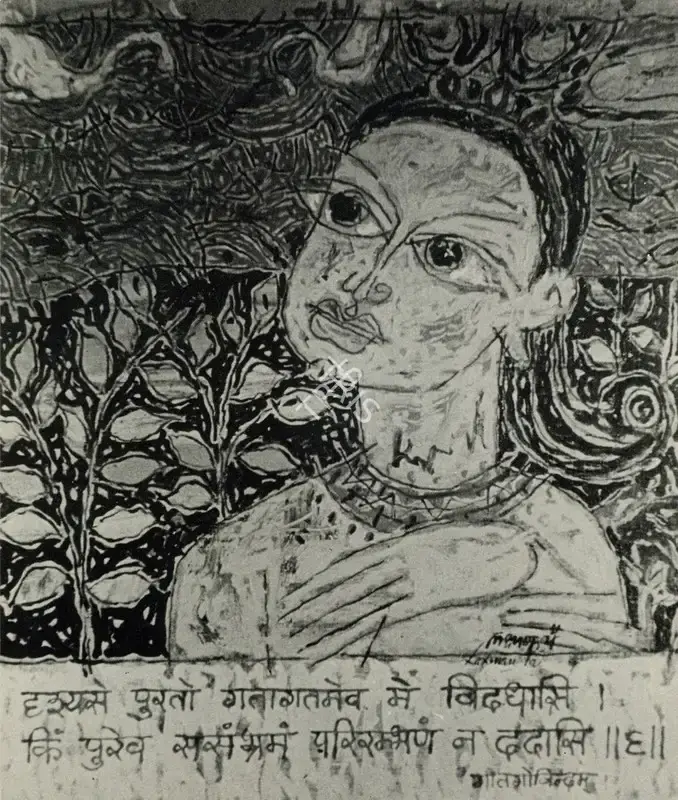 Laxman Pai
दृश्यसे पुरतो गतागतमेव में विदधासि ।
किं पुरेव ससंभ्रमं परिरम्भणं न ददासि ॥६॥
गीतगोविन्दम्